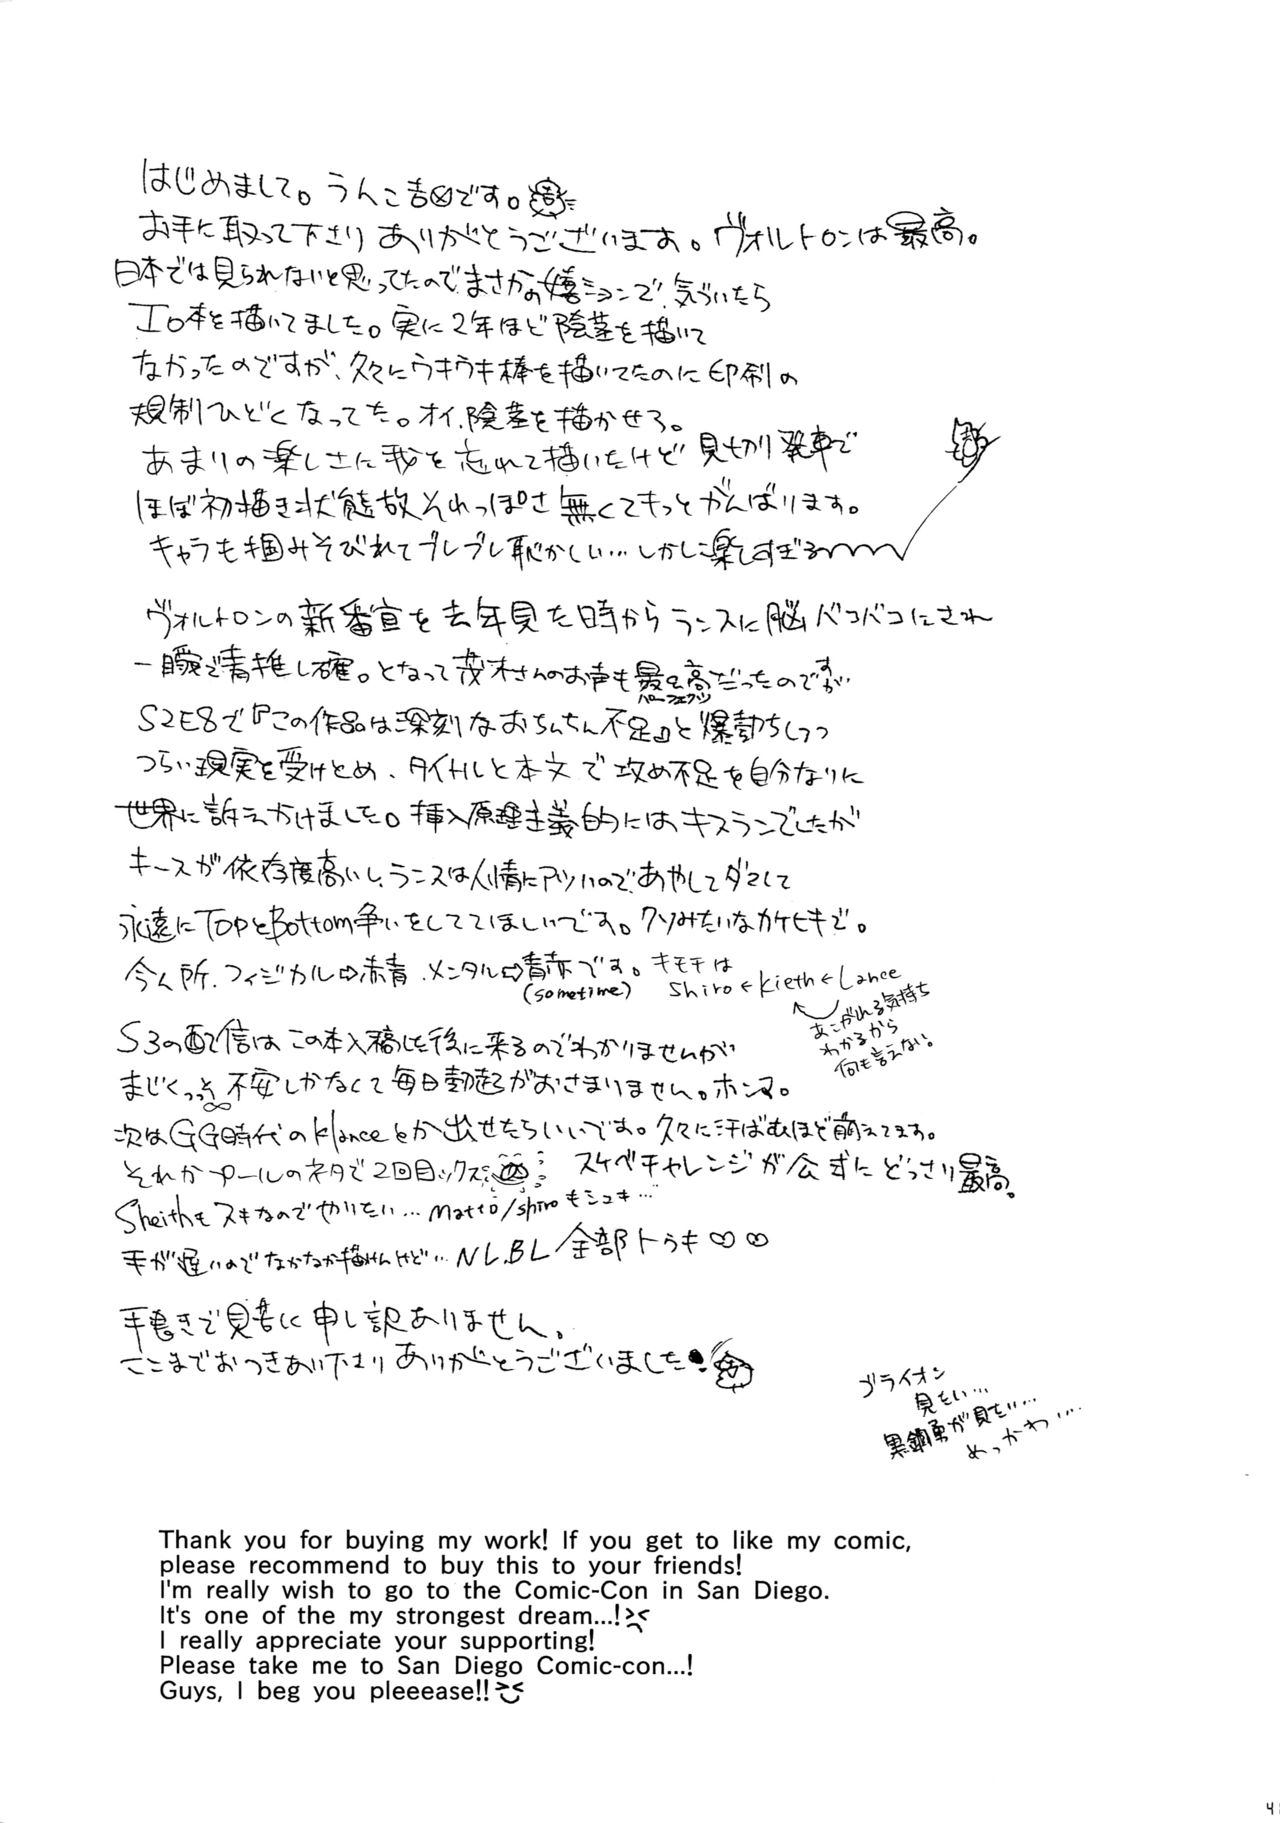 はじめまして。うんこ吉図です。
お手に取って下さり ありがとうございます。ヴォルトロンは最高。
日本では見られないと思ってたので、まさかの嬉ションで、気づいたら
エロ本を描いてました。実に2年ほど陰茎を描いて
なかったのですが、久々にウキウキ棒を描いてたのに印刷の
規制ひどくなってた。オイ、陰茎を描かせろ。
あまりの楽しさに我を忘れて描いたけど 見切り発車で
ほぼ初描き状態故それっぽさ無くてもっとがんばります。
キャラも掴みそびれてブレブレ恥かしい…しかし楽しすぎる
ヴォルトロンの新番宣を去年見た時からランスに脳バコバコにされ
一瞬で青推し確。となって茂木さんのお声も最&高だったのですが
パーフェクツ
S2E8で『この作品は深刻なおちんちん不足』と爆勃ちしつつ
つらい現実を受けとめ、タイトルと本文で攻め不足を自分なりに
世界に訴えかけました。挿入原理主義的にはキスランでしたが
キースが依存度高いし、ランスは人情にアツいので、あやしてダマして
永遠にTopとBottom争いをしててほしいです。クソみたいなカケヒキで。
今ん所、フィジカル⇨赤青、メンタル⇨青赤です。キモチは
(sometime)
Shiro←Kieth←Lance
あこがれる気持ち
わかるから
何も言えない。
S3の配信はこの本入稿した後に来るのでわかりませんが
まじくっそ不安しかなくて毎日勃起がおさまりません。ホンマ。
次はGG時代のklanceとか出せたらいいです。久々に汗ばむほど萌えてます。
それかプールのネタで2回目ックス スケベチャレンジが公式にどっさり最高。
Sheithもスキなのでやりたい…matto/shiroもシュキ…
手が遅いのでなかなか描けんけど…NL.BL全部トゥキ♡♡
手書きで見苦に申し訳ありません。
ここまでおつきあい下さり ありがとうございました!
ゴライオン
見たい…
黒鋼勇が見たい…
めっかわ…
Thank you for buying my work! If you get to like my comic,
please recommend to buy this to your friends!
I'm really wish to go to the Comic-Con in San Diego.
It's one of the my strongest dream...!
I really appreciate your supporting!
Please take me to San Diego Comic-con...!
Guys, I beg you pleeease!!